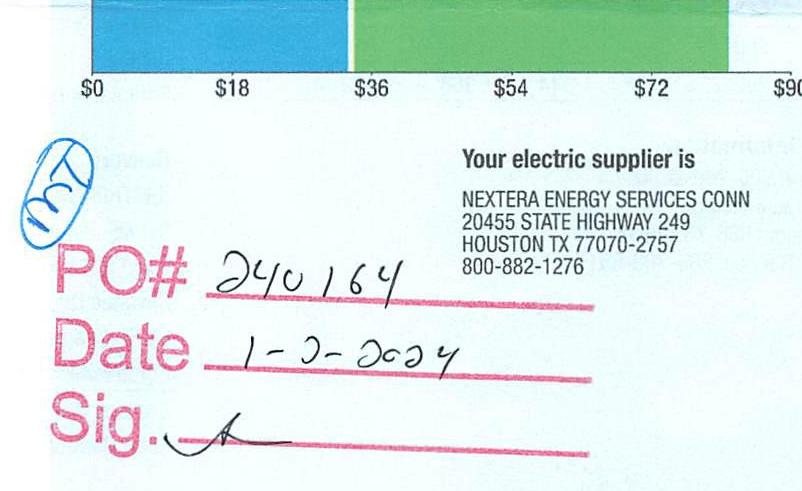 $0 $18 $36 $54 $72 $90
Your electric supplier is
NEXTERA ENERGY SERVICES CONN
20455 STATE HIGHWAY 249
HOUSTON TX 77070-2757
800-882-1276
MT
PO# 240164
Date 1-2-2024
Sig.